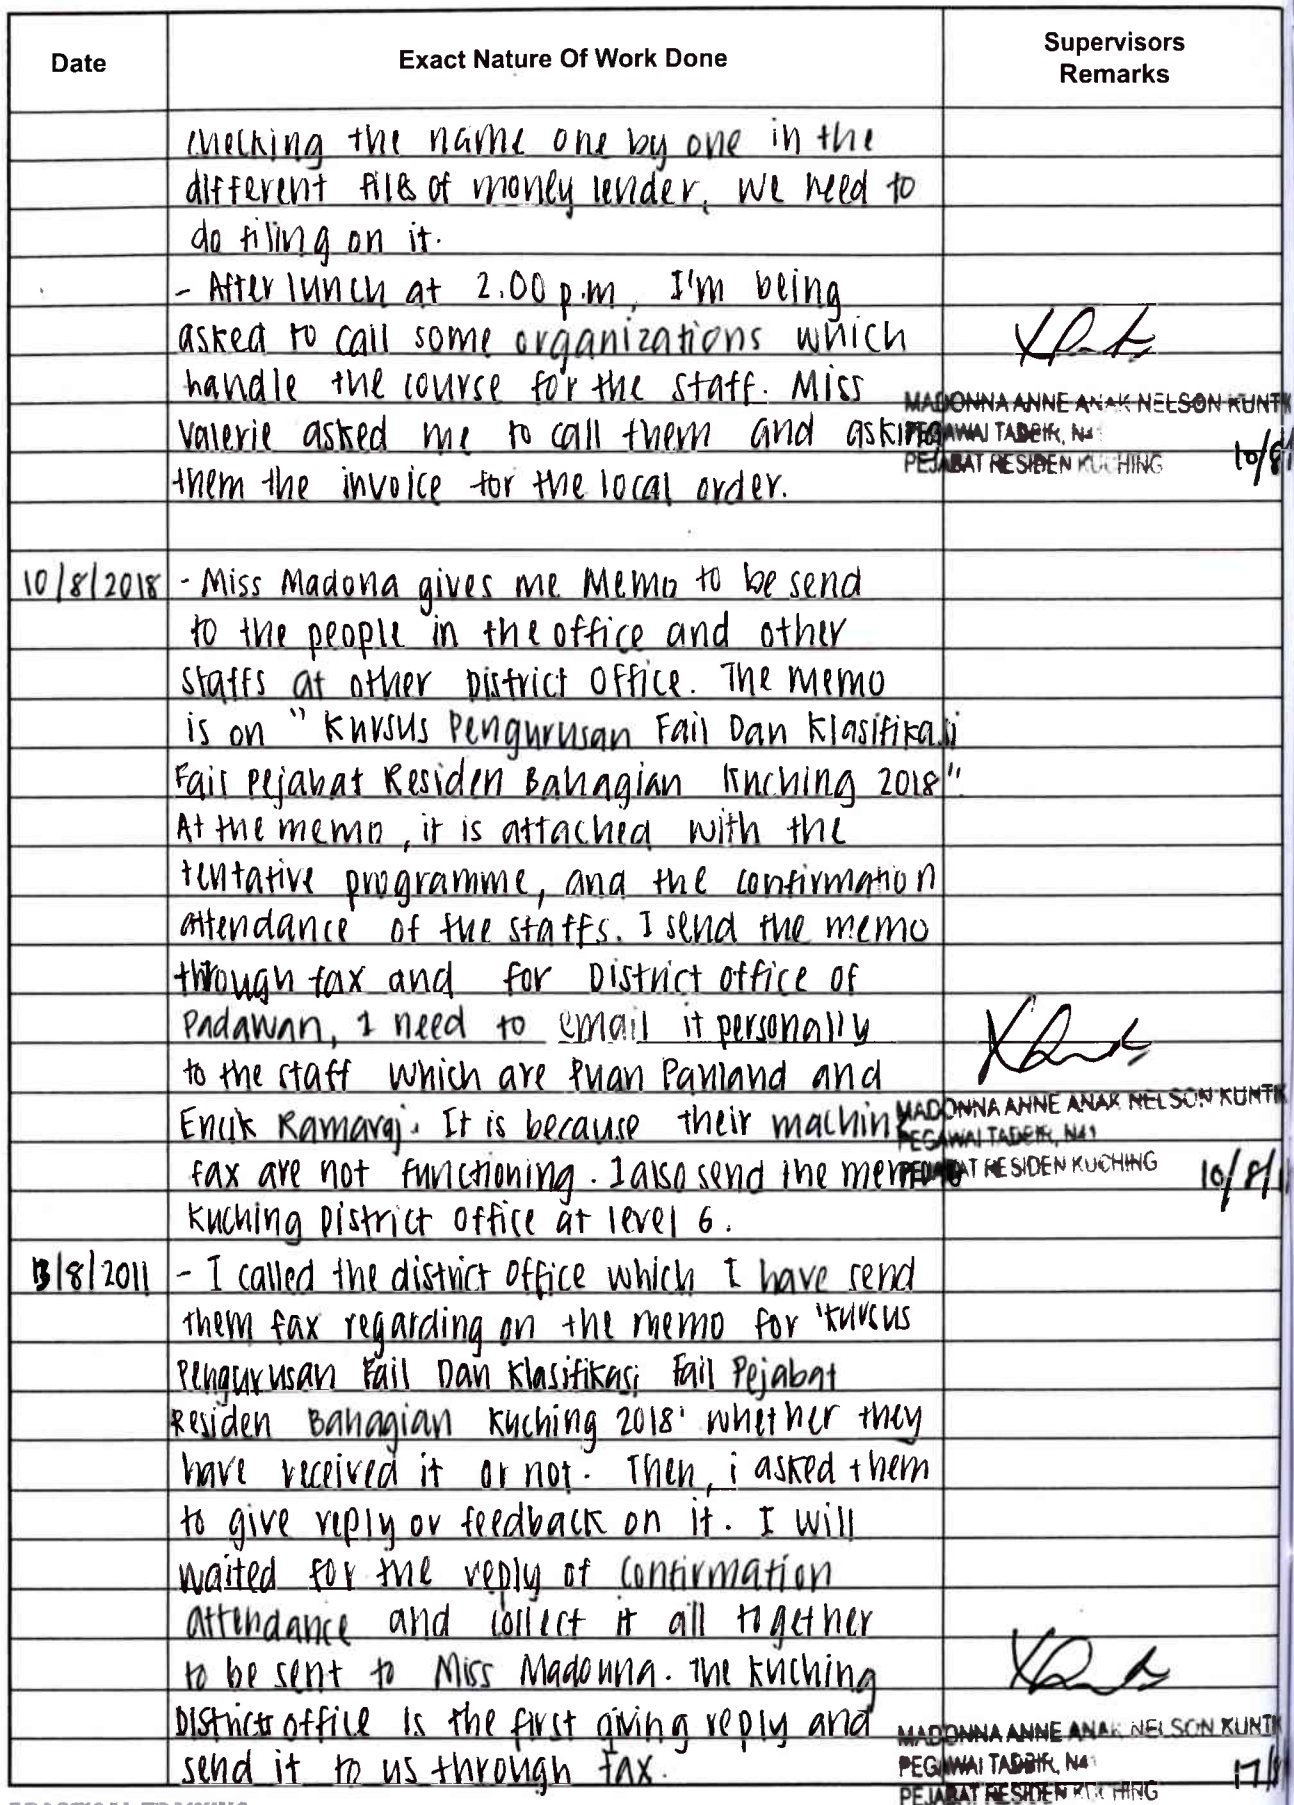 Date Exact Nature Of Work Done Supervisors Remarks
checking the name one by one in the
different files of money lender, we need to
do filing on it.
- After lunch at 2.00 p.m, I'm being
asked to call some organizations which
handle the course for the staff. Miss
Valerie asked me to call them and asking
them the invoice for the local order.
MADONNA ANNE ANAK NELSON KUNTI
PEGAWAI TADBIR, N41
PEJABAT RESIDEN KUCHING 10/8/
10/8/2018 - Miss Madona gives me Memo to be send
to the people in the office and other
staffs at other District Office. The memo
is on " Kursus Pengurusan Fail Dan Klasifikasi
Fail Pejabat Residen Bahagian Kuching 2018".
At the memo, it is attached with the
tentative programme, and the confirmation
attendance of the staffs. I send the memo
through fax and for District office of
Padawan, I need to email it personally
to the staff which are Puan Pauland and
Encik Ramaraj. It is because their machine
fax are not functioning. I also send the memo
Kuching District Office at level 6.
MADONNA ANNE ANAK NELSON KUNTI
PEGAWAI TADBIR, N41
PEJABAT RESIDEN KUCHING 10/8/1
13/8/2011 - I called the district office which I have send
them fax regarding on the memo for 'Kursus
Pengurusan Fail Dan Klasifikasi Fail Pejabat
Residen Bahagian Kuching 2018' whether they
have received it or not. Then, i asked them
to give reply or feedback on it. I will
waited for the reply of confirmation
attendance and collect it all together
to be sent to Miss Madonna. The Kuching
Districts office is the first giving reply and
send it to us through fax.
MADONNA ANNE ANAK NELSON KUNTI
PEGAWAI TADBIR, N41
PEJABAT RESIDEN KUCHING 17/8